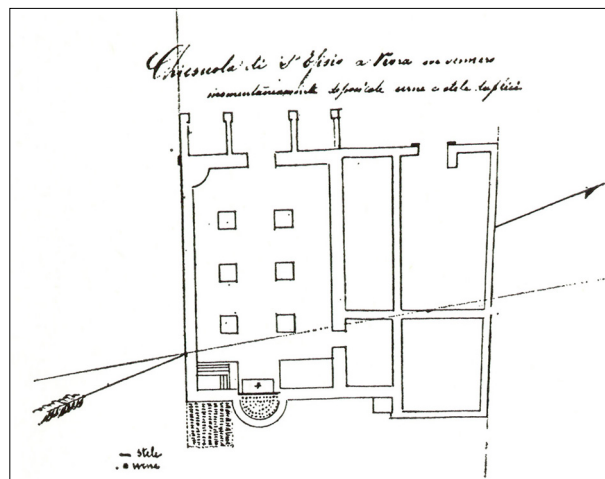 Chiesuola di S. Efisio a Nora ove vennero
momentaneamente deposicate urne e stele
— stele
• urne